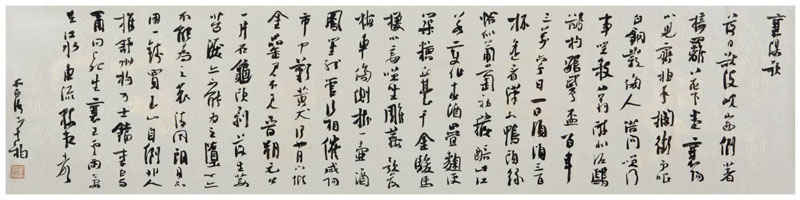 襄陽歌
落日欲没峴山西倒著
接䍦花下迷襄陽
小兒齊拍手攔街爭唱
白銅鞮傍人借問笑何
事笑殺山翁醉似泥鸕
鶿杓鸚鵡杯百年
三萬六千日一日須傾三百
杯遙看漢水鴨頭綠
恰似葡萄初醱醅此江
若變作春酒壘麴便
築糟丘臺千金駿馬
換小妾笑坐雕鞍歌落
梅車傍側掛一壺酒
鳳笙龍管行相催咸陽
市中歎黃犬何如月下傾
金罍君不見晉朝羊公
一片石龜頭剝落生莓
苔淚亦不能為之墮心亦
不能為之哀清風朗月不
用一錢買玉山自倒非人
推舒州杓力士鐺李白與
爾同死生襄王雲雨今安
在江水東流猿夜聲